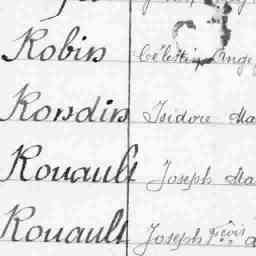 Robin Célestin Ange
Rondin Isidore Ma
Rouault Joseph Ma
Rouault Joseph